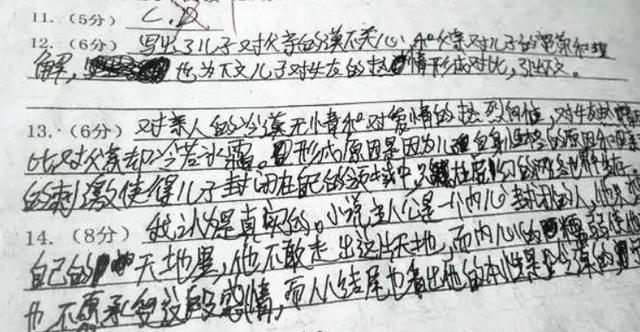 11. (5分) C.D
12. (6分) 写出了儿子对父亲的漠不关心,和父亲对儿子的宽容和理
解, 也为下文儿子对女友的热情形成对比,引出下文。
13. (6分) 对亲人的冷漠无情和对爱情的热烈向往,对女友热情
比对父亲却冷若冰霜。形成原因是因为儿子自身性格的原因和
的刺激使得儿子封闭在自己的领域中,
14. (8分) 我认为是真实的。小说主人公是一个内心封闭的人,他只
自己的天地里,他不敢走出这片天地,而内心的懦弱使他
也不愿承受这段感情,而从结尾也看出他的本性是冷漠的